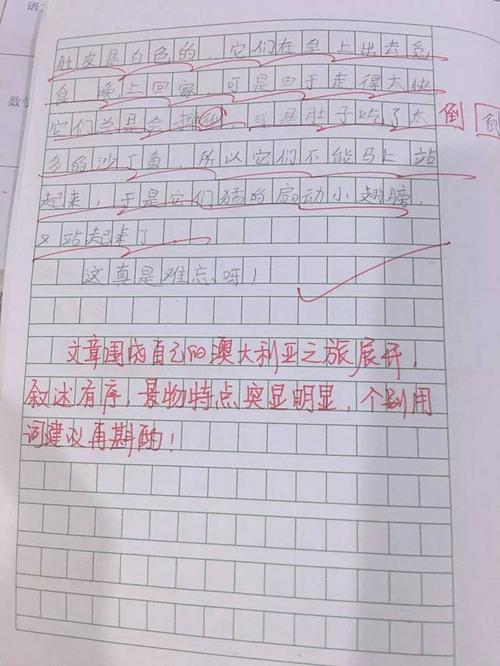 语
数
肚皮是白色的。它们在早上出去觅
食,晚上回家,可是由于走得太快
它们总是会摔 可是肚子吃了太 倒 倒
多的沙丁鱼,所以它们不能马上站
起来,于是它们猛的扇动小翅膀,
又站起来了
这真是难忘呀!
文章围内自己的澳大利亚之旅展开,
叙述有序,景物特点突显明显,个别用
词建议再斟酌!